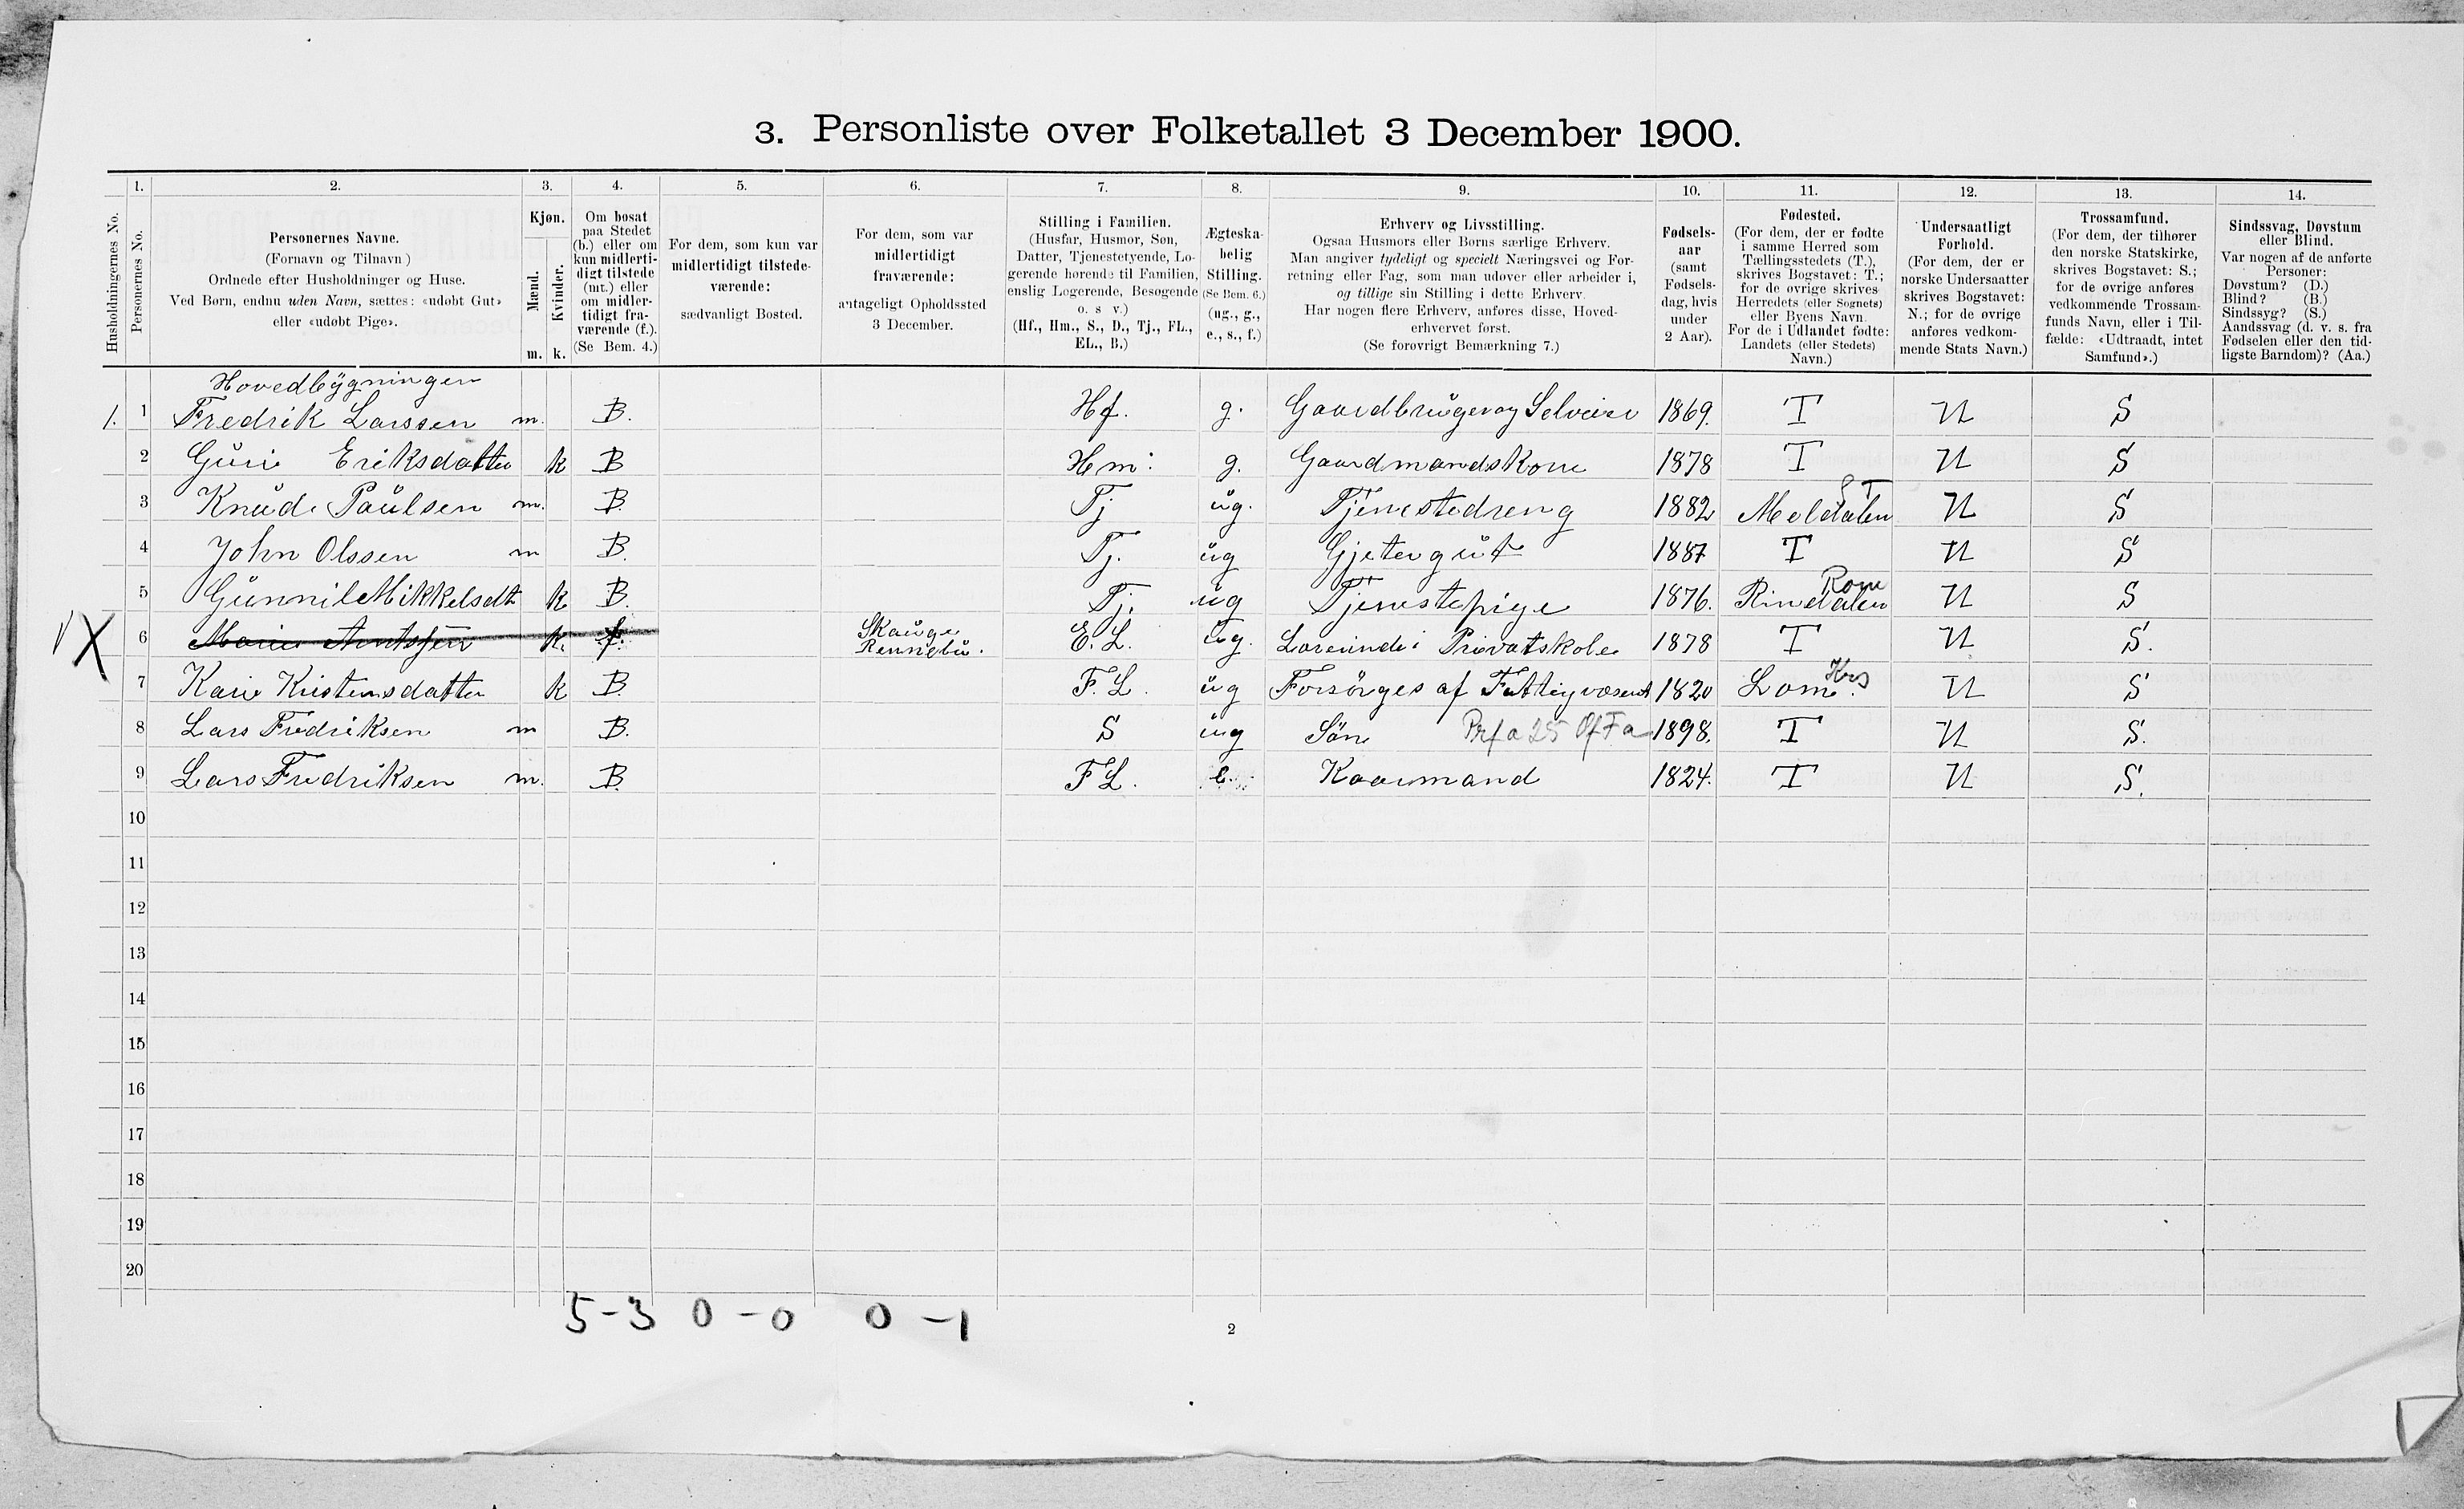 3. Personliste over Folketallet 3 December 1900.
1. 2. 3. 4. 5. 6. 7. 8. 9. 10. 11. 12. 13. 14.
Husholdningernes No.
Personernes No.
Personernes Navne.
(Fornavn og Tilnavn)
Ordnede efter Husholdninger og Huse.
Ved Børn, endnu uden Navn, sættes: «udøbt Gut»
eller «udøbt Pige».
Kjøn.
Mænd.
Kvinder.
m. k.
Om bosat
paa Stedet
(b.) eller om
kun midlerti-
digt tilstede
(mt.) eller
om midler-
tidigt fra-
værende (f.).
(Se Bem. 4.)
For dem, som kun var
midlertidigt tilstede-
værende:
sædvanligt Bosted.
For dem, som var
midlertidigt
fraværende:
antageligt Opholdssted
3 December.
Stilling i Familien.
(Husfar, Husmor, Søn,
Datter, Tjenestetyende, Lo-
gerende hørende til Familien,
enslig Logerende, Besøgende
o. s v.)
(Hf., Hm., S., D., Tj., FL.,
EL., B.)
Ægteska-
belig
Stilling.
(Se Bem. 6.)
(ug., g.,
e., s., f.)
Erhverv og Livsstilling.
Ogsaa Husmors eller Børns særlige Erhverv.
Man angiver tydeligt og specielt Næringsvei og For-
retning eller Fag, som man udøver eller arbeider i,
og tillige sin Stilling i dette Erhverv.
Har nogen flere Erhverv, anføres disse, Hoved-
erhvervet først.
(Se forøvrigt Bemærkning 7.)
Fødsels-
aar
(samt
Fødsels-
dag, hvis
under
2 Aar).
Fødested.
(For dem, der er fødte
i samme Herred som
Tællingsstedets (T.),
skrives Bogstavet: T.;
for de øvrige skrives
Herredets (eller Sognets)
eller Byens Navn.
For de i Udlandet fødte:
Landets (eller Stedets)
Navn.)
Undersaatligt
Forhold.
(For dem, der er
norske Undersaatter
skrives Bogstavet:
N.; for de øvrige
anføres vedkom-
mende Stats Navn.)
Trossamfund.
(For dem, der tilhører
den norske Statskirke,
skrives Bogstavet: S.;
for de øvrige anføres
vedkommende Trossam-
funds Navn, eller i Til-
fælde: «Udtraadt, intet
Samfund».)
Sindssvag, Døvstum
eller Blind.
Var nogen af de anførte
Personer:
Døvstum? (D.)
Blind? (B.)
Sindssyg? (S.)
Aandssvag (d. v. s. fra
Fødselen eller den tid-
ligste Barndom)? (Aa.)
Hovedbygningen
1. 1 Fredrik Larssen m. B. Hf. g. Gaardbruger og Selveier 1869. T N S
2 Guri Eriksdatter k B Hm. g. Gaardmandskone 1878 T N S
3 Knud Paulsen m. B. Tj ug. Tjenestedreng 1882 Meldalen S T N S
4 John Olssen m B. Tj. ug Gjetergut 1887 T N S
5 Gunnil Mikkelsdt k B. Tj. ug Tjenestepige 1876. Rindalen Rom N S
X 6 Marie k. f. Skauge
Rennebu. E. L. ug. Lærerinde i Privatskole 1878 T N S.
7 Kari Kristensdatter k B. F. L. ug Forsørges af Fattigvæsenet 1820 Lom Kri N S
8 Lars Fredriksen m B. S ug Søn 1898. T N S.
9 Lars Fredriksen m. B. FL. e. Kaarmand 1824. T N S.
10
11
12
13
14
15
16
17
18
19
20
5-3 0-0 0-1
2